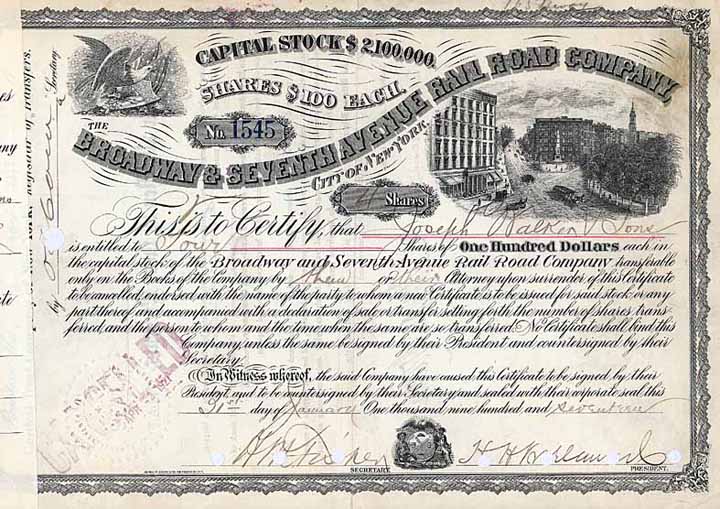 CAPITAL STOCK $2,100,000.
SHARES $100 EACH.
No. 1545
THE
BROADWAY & SEVENTH AVENUE RAIL ROAD COMPANY,
CITY OF NEW-YORK.
Shares
This is to Certify, that Joseph Walker & Sons
is entitled to Four Shares of One Hundred Dollars each in
the capital stock of the Broadway and Seventh Avenue Rail Road Company transferable
only on the Books of the Company by them or their Attorney upon surrender of this Certificate
to be cancelled, endorsed with the name of the party to whom a new Certificate is to be issued for said stock or any
part thereof and accompanied with a declaration of sale or transfer setting forth the number of shares trans-
ferred, and the person to whom and the time when the same are so transferred. No Certificate shall bind this
Company, unless the same be signed by their President and countersigned by their
Secretary.
In Witness whereof, the said Company have caused this Certificate to be signed by their
President, and to be countersigned by their Secretary and sealed with their corporate seal this
day of January One thousand nine hundred and seventeen
SECRETARY
PRESIDENT.
Registrar of Transfers.
by
Secretary
CANCELLED